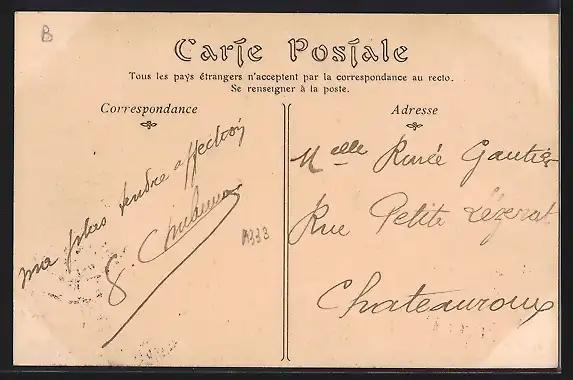 B
Carte Postale
Tous les pays étrangers n'acceptent par la correspondance au recto.
Se renseigner à la poste.
Correspondance
Adresse
ma plus tendre affection
A333
Melle Renée Gautier
Rue Petite
Chateauroux